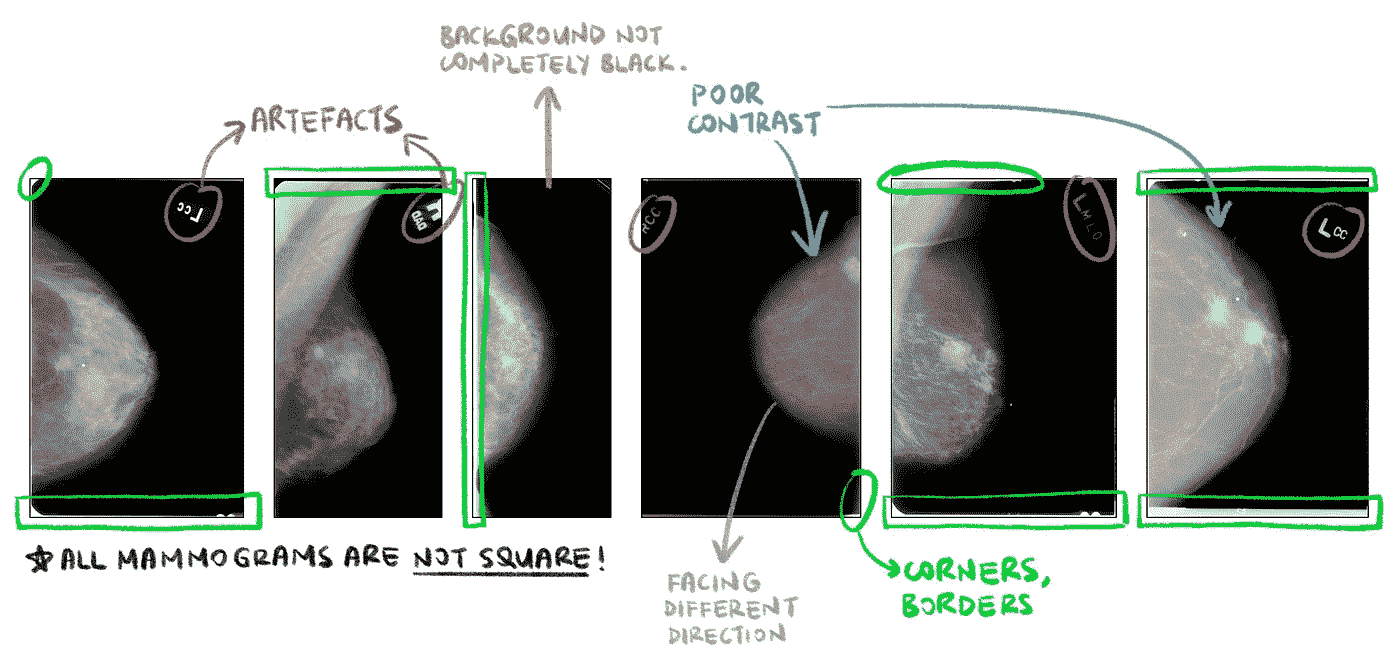 BACKGROUND NOT
COMPLETELY BLACK.
ARTEFACTS
POOR
CONTRAST
LCC
RCC
LMLO
LCC
☆ ALL MAMMOGRAMS ARE NOT SQUARE!
FACING
DIFFERENT
DIRECTION
CORNERS,
BORDERS